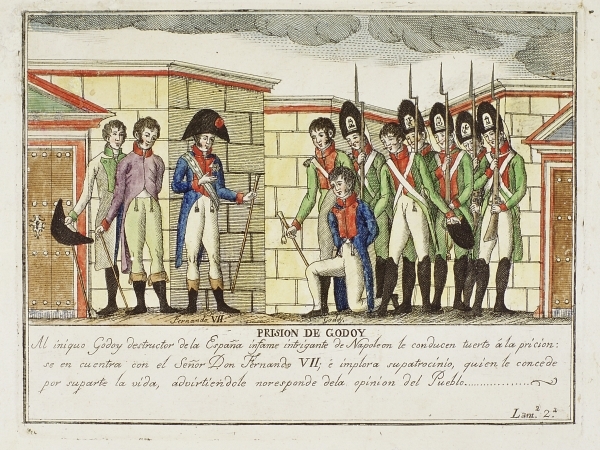 Fernando VII
Godoy
PRISION DE GODOY
Al iniquo Godoy destructor de la España infame intrigante de Napoleon le conducen tuerto á la pricion:
se en cuentra con el Señor Don Fernando VII; é implora supatrocinio, quien le concede
por suparte la vida, advirtiendole noresponde dela opinion del Pueblo.
Lam.ª 2.ª